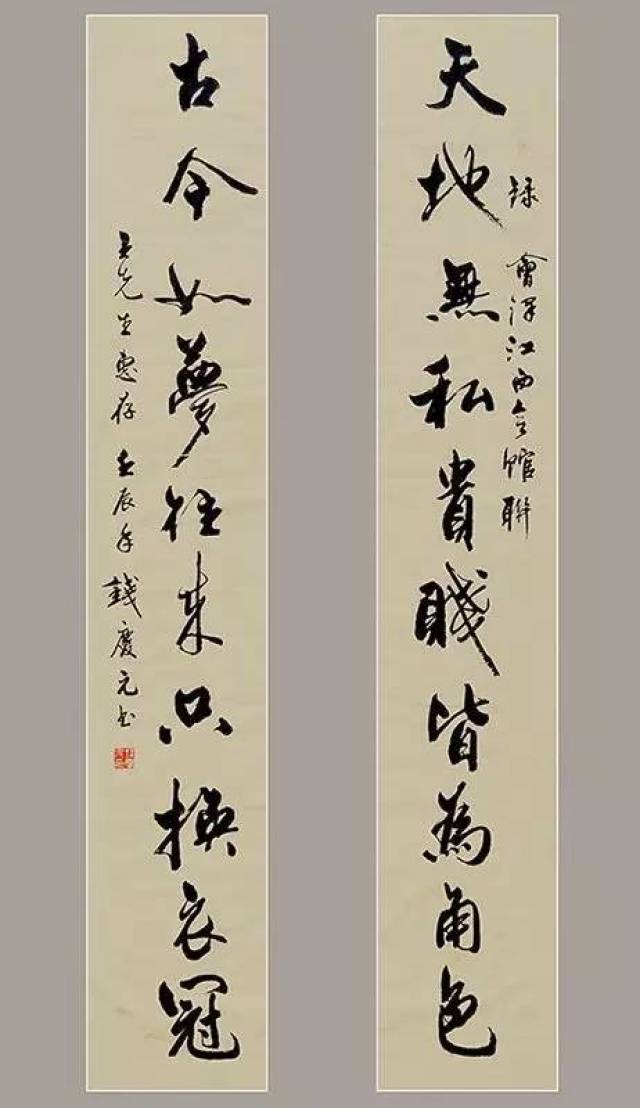 錄 會澤江西会館聯
天地無私貴賤皆為角色
古今如夢往來只換衣冠
王先生惠存 壬辰年 錢慶元书